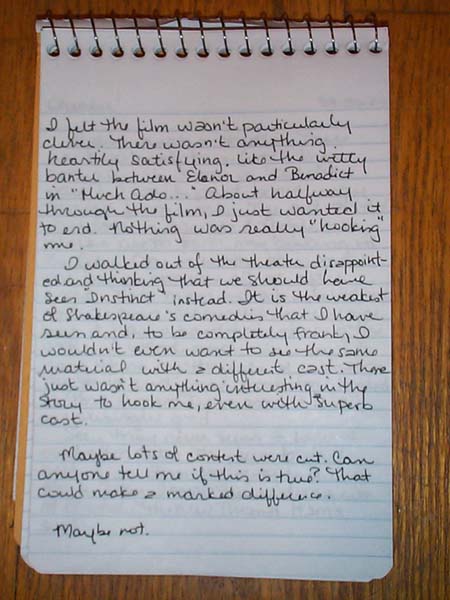 I felt the film wasn't particularly
clever. There wasn't anything
heartily satisfying, like the witty
banter between Elenor and Benedict
in "Much Ado..." About halfway
through the film, I just wanted it
to end. Nothing was really "hooking"
me.
I walked out of the theater disappoint-
ed and thinking that we should have
seen "Instinct" instead. It is the weakest
of Shakespeare's comedies that I have
seen and, to be completely frank, I
wouldn't even want to see the same
material with a different cast. There
just wasn't anything interesting in the
story to hook me, even with superb
cast.
Maybe lots of content were cut. Can
anyone tell me if this is true? That
could make a marked difference.
Maybe not.